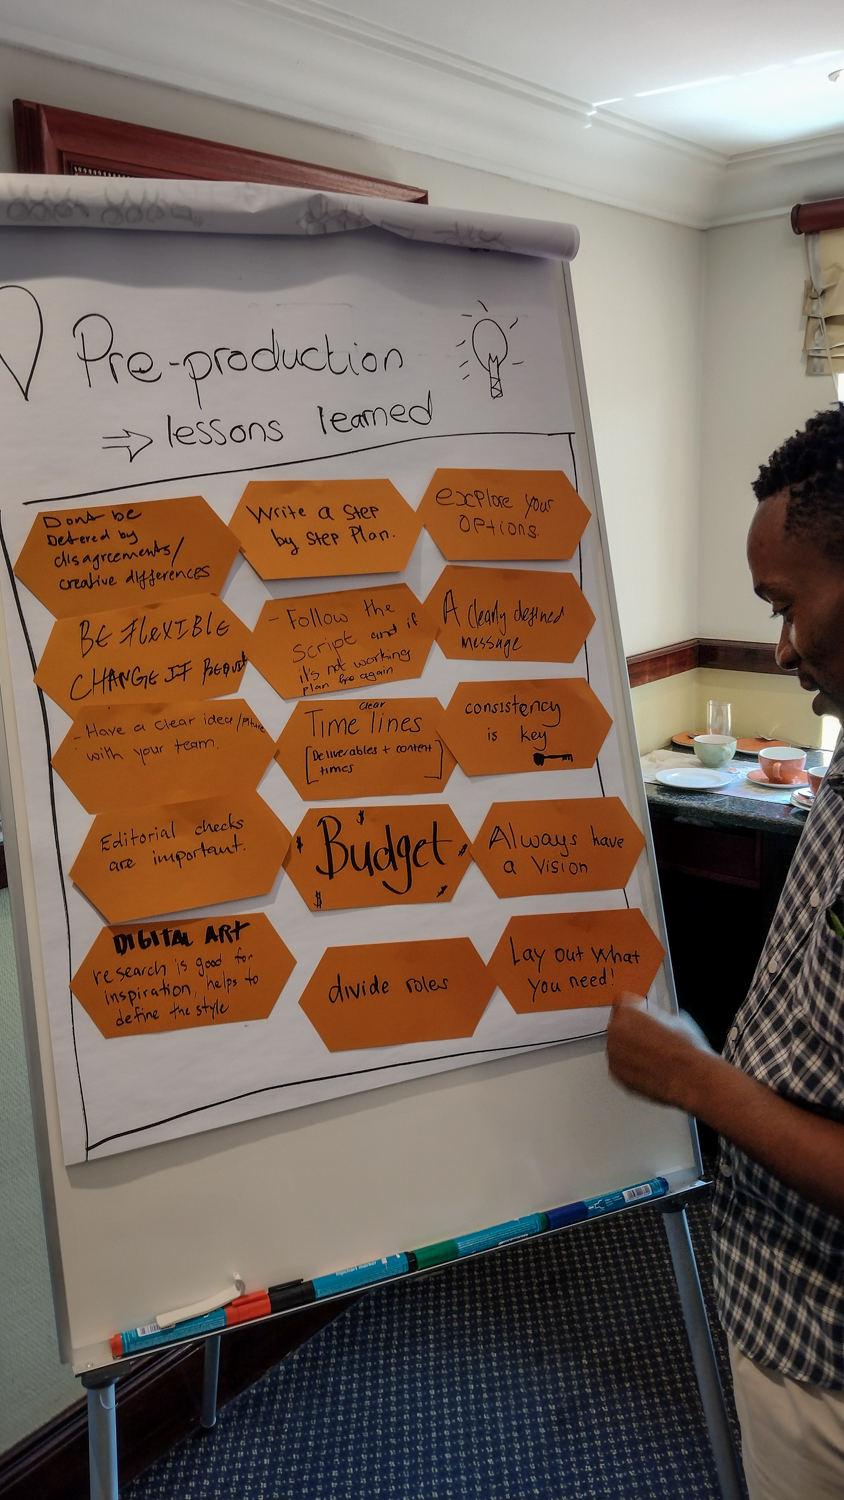 Pre-production
⇒ lessons learned
Dont be
Detered by
disagreements/
creative differences
Write a Step
by Step Plan.
explore your
options.
BE FLEXIBLE
CHANGE IF
- Follow the
script and if
it's not working
plan again
A clearly defined
message
- Have a clear idea/
with your team.
clear
Time lines
[Deliverables + content
times]
consistency
is key
Editorial checks
are important.
$ Budget $
$ $
Always have
a vision
DIGITAL ART
research is good for
inspiration, helps to
define the style
divide roles
Lay out what
you need!